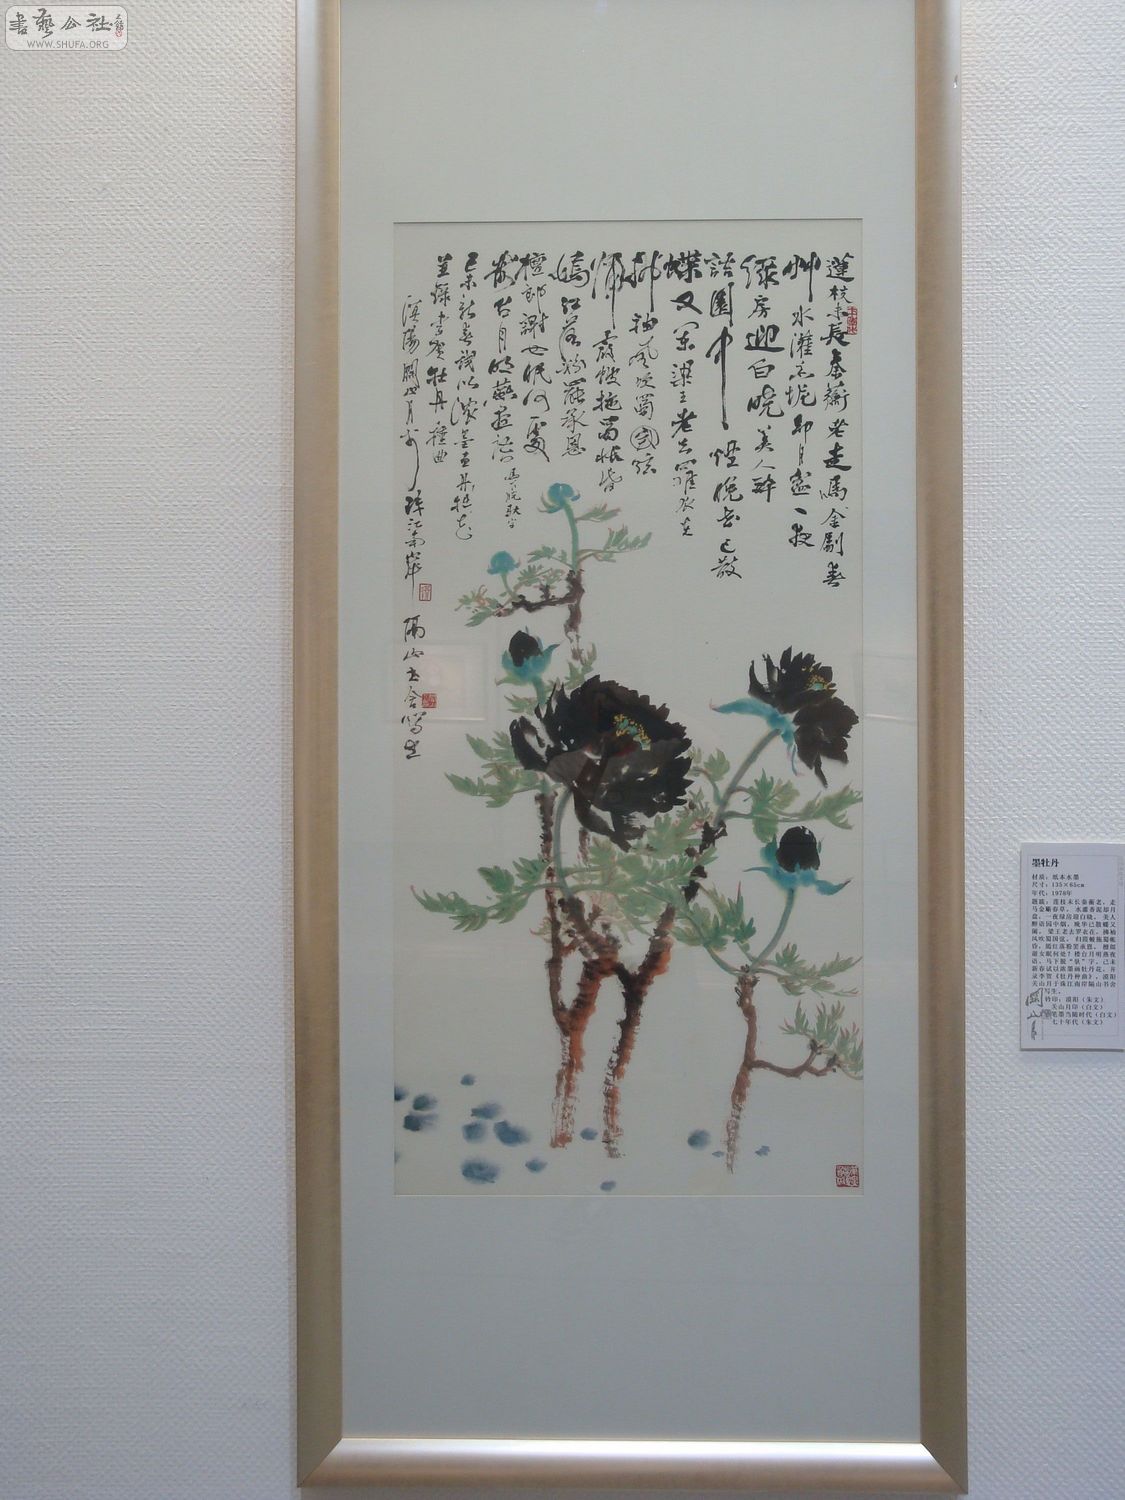 書藝公社
WWW.SHUFA.ORG
蓮枝未長秦蘅老走馬金劚春
艸水灌香坭卻月盆一夜
綠房迎白曉美人醉
語園中煙晚華已散
蝶又闌梁王老去羅衣在
拂袖風吹蜀國弦
歸霞帔拖蜀帳昏
嫣紅落粉罷承恩
檀郎謝女眠何處
樓台月明燕夜語
己未新春試以濃墨画牡丹花
並錄李賀牡丹種曲
漠陽關山月於珠江南岸
隔山書舍寫生
墨牡丹
材质：纸本水墨
尺寸：135×65cm
年代：1978年
题跋：莲枝未长秦蘅老，走
马金劚春草。水灌香泥却月
盆，一夜绿房迎白晓。美人
醉语园中烟，晚华已散蝶又
阑。梁王老去罗衣在，拂袖
风吹蜀国弦。归霞帔拖蜀帐
昏，嫣红落粉罢承恩。檀郎
谢女眠何处？楼台月明燕夜
语。马下脱“驮”字。己未
新春试以浓墨画牡丹花，并
录李贺《牡丹种曲》。漠阳
关山月于珠江南岸隔山书舍
写生。
钤印：漠阳（朱文）
关山月印（白文）
笔墨当随时代（白文）
七十年代（朱文）
關山月